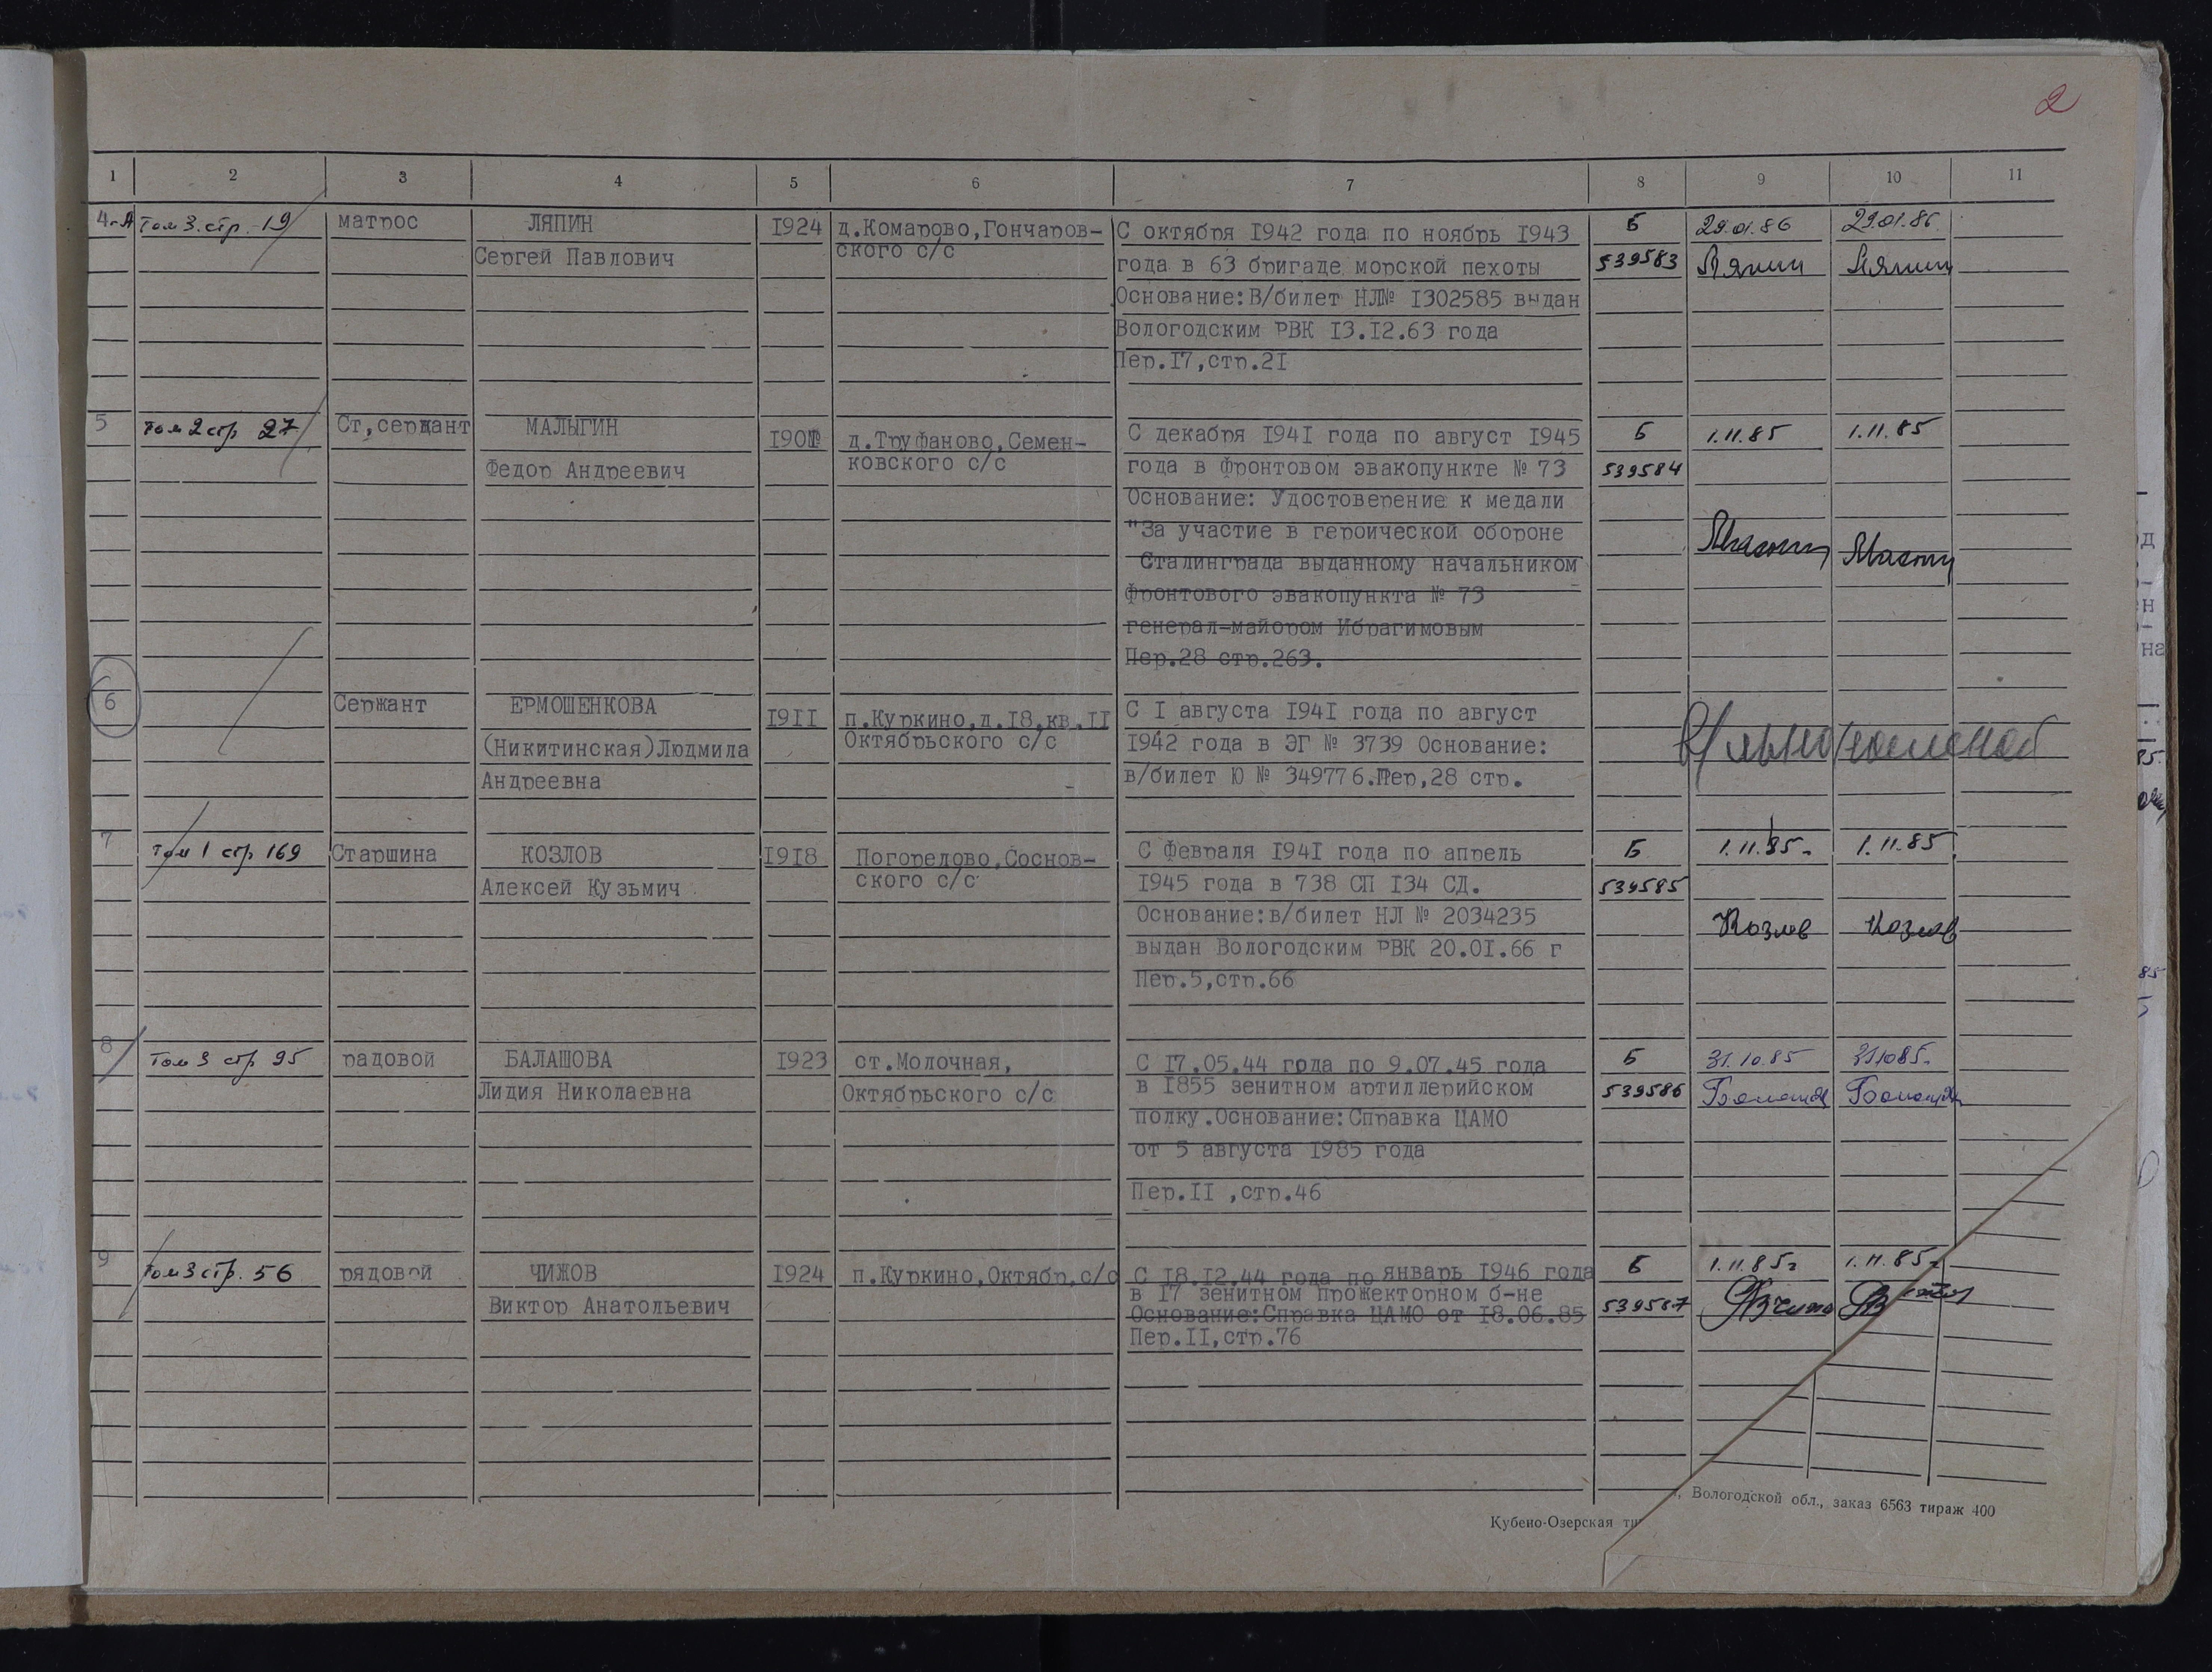 2
1 2 3 4 5 6 7 8 9 10 11
4-А Том 3. стр. 19 матрос ЛЯПИН 1924 д.Комарово,Гончаров- С октября 1942 года по ноябрь 1943 Б 29.01.86 29.01.86.
Сергей Павлович ского с/с года в 63 бригаде морской пехоты 539583 Ляпин Ляпин
Основание:В/билет НЛ№ 1302585 выдан
Вологодским РВК 13.12.63 года
Пер.17,стр.21
5 Том 2 стр 27 Ст,сержант МАЛЫГИН д.Труфаново,Семен- С декабря 1941 года по август 1945 Б 1.11.85 1.11.85
Федор Андреевич ковского с/с года в Фронтовом эвакопункте № 73 539584
Основание: Удостоверение к медали
"За участие в героической обороне
Сталинграда выданному начальником
Фронтового эвакопункта № 73
генерал-майором Ибрагимовым
Пер.28 стр.263.
6 Сержант ЕРМОШЕНКОВА 1911 п.Куркино,д.18,кв.11 С 1 августа 1941 года по август
(Никитинская)Людмила Октябрьского с/с 1942 года в ЭГ № 3739 Основание:
Андреевна в/билет Ю № 349776.Пер,28 стр.
7 Том 1 стр 169 Старшина КОЗЛОВ 1918 Погорелово,Соснов- С Февраля 1941 года по апрель Б 1.11.85. 1.11.85.
Алексей Кузьмич ского с/с 1945 года в 738 СП 134 СД. 539585
Основание:в/билет НЛ № 2034235 Козлов Козлов
выдан Вологодским РВК 20.01.66 г
Пер.5,стр.66
8 Том 3 стр 95 радовой БАЛАШОВА 1923 ст.Молочная, С 17.05.44 года по 9.07.45 года Б 31.10.85 311085.
Лидия Николаевна Октябрьского с/с в 1855 зенитном артиллерийском 539586
полку.Основание:Справка ЦАМО
от 5 августа 1985 года
Пер.11 ,стр.46
9 Том 3 стр. 56 рядовой ЧИЖОВ 1924 п.Куркино,Октябр,с/с С 18.12.44 года по январь 1946 года Б 1.11.85г 1.11.85г
Виктор Анатольевич в 17 зенитном прожекторном б-не 539587
Основание:Справка ЦАМО от 18.06.85
Пер.11,стр.76
Вологодской обл., заказ 6563 тираж 400
Кубено-Озерская ти